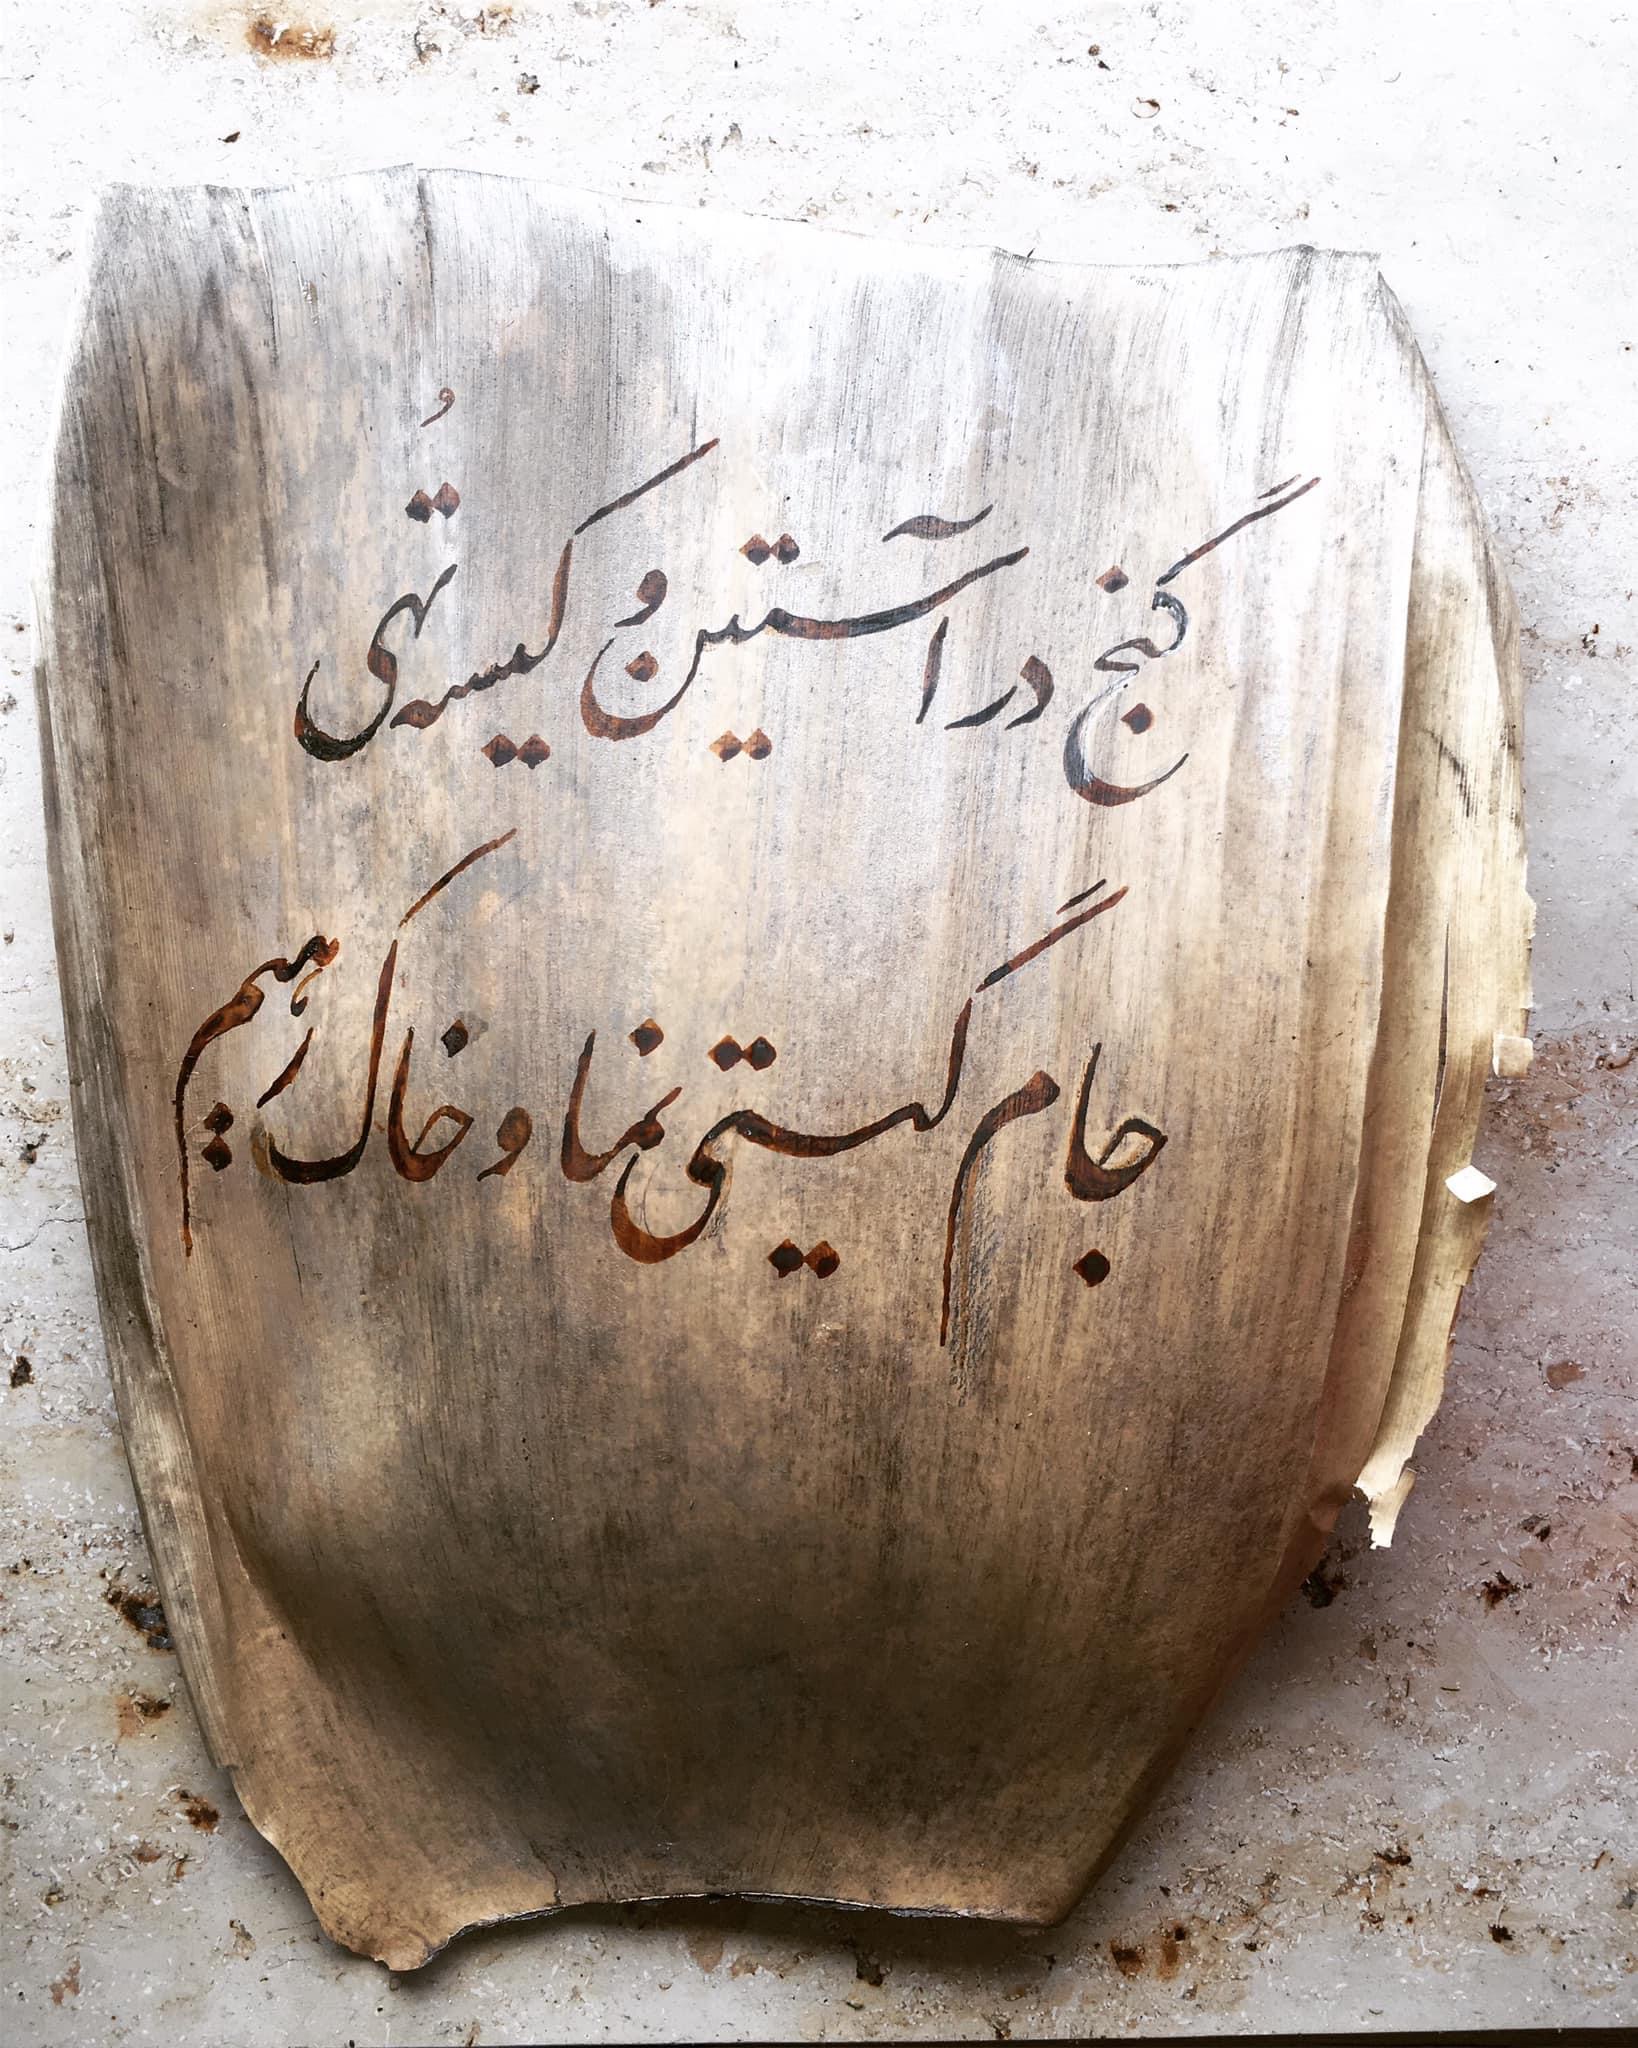 گنج در آستین و کیسه تُهی
جام گیتی نما و خاک رهیم